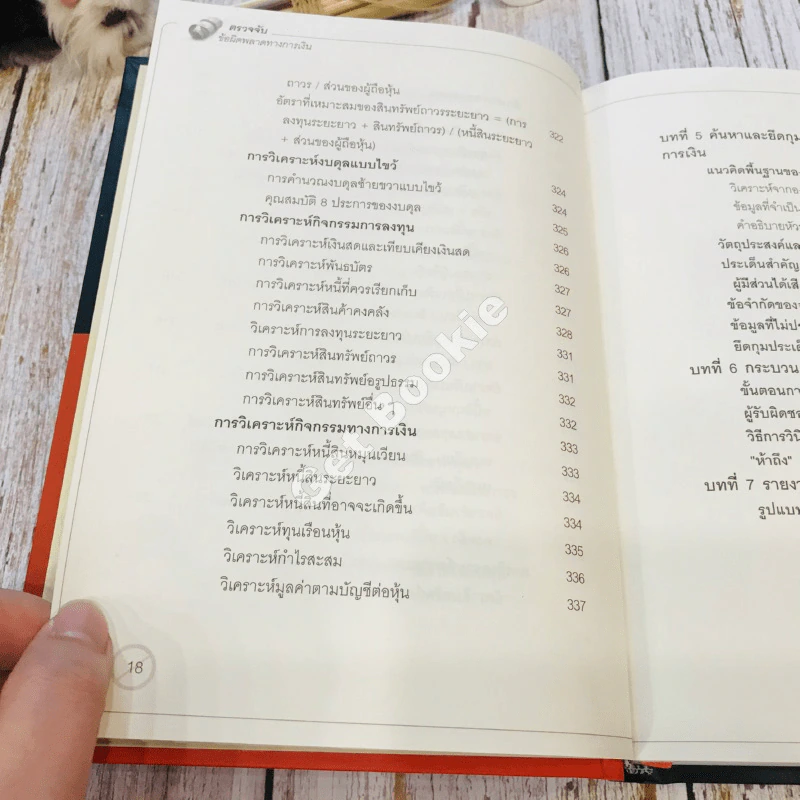 ตรวจจับ
ข้อผิดพลาดทางการเงิน
ถาวร / ส่วนของผู้ถือหุ้น
อัตราที่เหมาะสมของสินทรัพย์ถาวรระยะยาว = (การ
ลงทุนระยะยาว + สินทรัพย์ถาวร) / (หนี้สินระยะยาว 322
+ ส่วนของผู้ถือหุ้น)
การวิเคราะห์งบดุลแบบไขว้
การคำนวณงบดุลซ้ายขวาแบบไขว้ 324
คุณสมบัติ 8 ประการของงบดุล 324
การวิเคราะห์กิจกรรมการลงทุน 325
การวิเคราะห์เงินสดและเทียบเคียงเงินสด 326
การวิเคราะห์พันธบัตร 326
การวิเคราะห์หนี้ที่ควรเรียกเก็บ 327
การวิเคราะห์สินค้าคงคลัง 327
วิเคราะห์การลงทุนระยะยาว 328
การวิเคราะห์สินทรัพย์ถาวร 331
การวิเคราะห์สินทรัพย์อรูปธรรม 331
การวิเคราะห์สินทรัพย์อื่น 332
การวิเคราะห์กิจกรรมทางการเงิน 332
การวิเคราะห์หนี้สินหมุนเวียน 333
วิเคราะห์หนี้สินระยะยาว 333
วิเคราะห์หนี้สินที่อาจจะเกิดขึ้น 334
วิเคราะห์ทุนเรือนหุ้น 334
วิเคราะห์กำไรสะสม 335
วิเคราะห์มูลค่าตามบัญชีต่อหุ้น 336
337
18
Get Bookie
บทที่ 5 ค้นหาและยึดกุม
การเงิน
แนวคิดพื้นฐานของ
วิเคราะห์จากอง
ข้อมูลที่จำเป็น
คำอธิบายหัว
วัตถุประสงค์และ
ประเด็นสำคัญ
ผู้มีส่วนได้เสี
ข้อจำกัดของ
ข้อมูลที่ไม่ป
ยึดกุมประเด็
บทที่ 6 กระบวน
ขั้นตอนกา
ผู้รับผิดช
วิธีการวินิ
"ห้าถึง"
บทที่ 7 รายงา
รูปแบบ